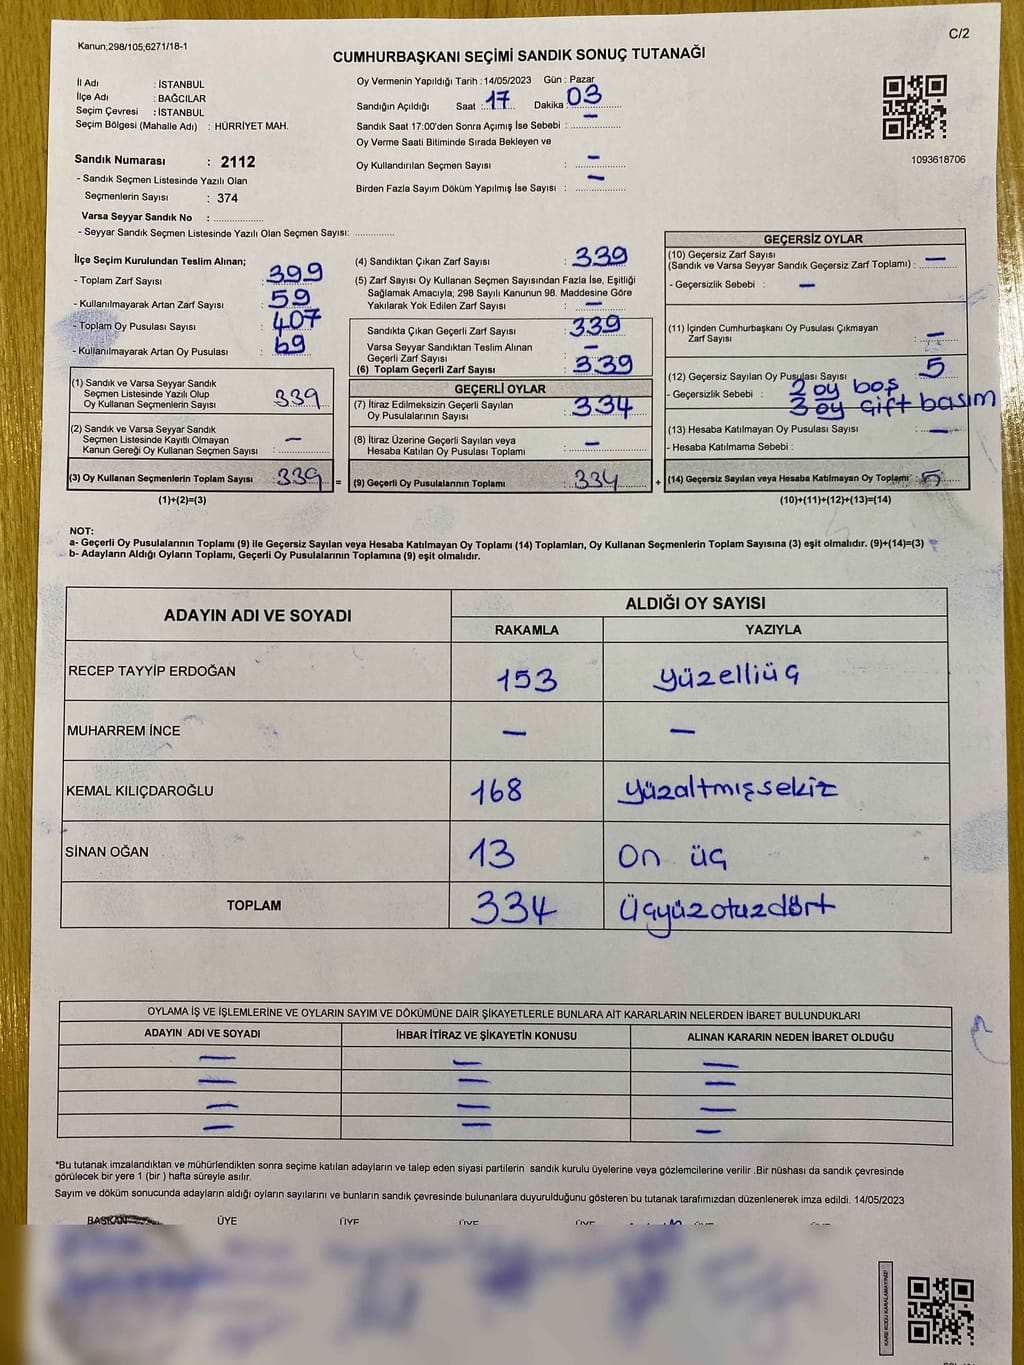 Kanun,298/105,6271/18-1
C/2
CUMHURBAŞKANI SEÇİMİ SANDIK SONUÇ TUTANAĞI
İl Adı : İSTANBUL
İlçe Adı : BAĞCILAR
Seçim Çevresi : İSTANBUL
Seçim Bölgesi (Mahalle Adı) : HÜRRİYET MAH.
Oy Vermenin Yapıldığı Tarih : 14/05/2023 Gün : Pazar
Sandığın Açıldığı Saat : 17 Dakika 03
Sandık Saat 17:00'den Sonra Açımış İse Sebebi : –
Oy Verme Saati Bitiminde Sırada Bekleyen ve
Oy Kullandırılan Seçmen Sayısı : –
Birden Fazla Sayım Döküm Yapılmış İse Sayısı : –
1093618706
Sandık Numarası : 2112
- Sandık Seçmen Listesinde Yazılı Olan
Seçmenlerin Sayısı : 374
Varsa Seyyar Sandık No : ..................
- Seyyar Sandık Seçmen Listesinde Yazılı Olan Seçmen Sayısı: ..............
İlçe Seçim Kurulundan Teslim Alınan;
- Toplam Zarf Sayısı : 399
- Kullanılmayarak Artan Zarf Sayısı : 59
- Toplam Oy Pusulası Sayısı : 407
- Kullanılmayarak Artan Oy Pusulası : 69
(1) Sandık ve Varsa Seyyar Sandık
Seçmen Listesinde Yazılı Olup
Oy Kullanan Seçmenlerin Sayısı : 339
(2) Sandık ve Varsa Seyyar Sandık
Seçmen Listesinde Kayıtlı Olmayan
Kanun Gereği Oy Kullanan Seçmen Sayısı : –
(3) Oy Kullanan Seçmenlerin Toplam Sayısı : 339 =
(1)+(2)=(3)
(4) Sandıktan Çıkan Zarf Sayısı : 339
(5) Zarf Sayısı Oy Kullanan Seçmen Sayısından Fazla İse, Eşitliği
Sağlamak Amacıyla; 298 Sayılı Kanunun 98. Maddesine Göre
Yakılarak Yok Edilen Zarf Sayısı : –
Sandıkta Çıkan Geçerli Zarf Sayısı : 339
Varsa Seyyar Sandıktan Teslim Alınan
Geçerli Zarf Sayısı : –
(6) Toplam Geçerli Zarf Sayısı : 339
GEÇERLİ OYLAR
(7) İtiraz Edilmeksizin Geçerli Sayılan
Oy Pusulalarının Sayısı : 334
(8) İtiraz Üzerine Geçerli Sayılan veya
Hesaba Katılan Oy Pusulası Toplamı : –
(9) Geçerli Oy Pusulalarının Toplamı : 334 +
GEÇERSİZ OYLAR
(10) Geçersiz Zarf Sayısı
(Sandık ve Varsa Seyyar Sandık Geçersiz Zarf Toplamı) : –
- Geçersizlik Sebebi : –
(11) İçinden Cumhurbaşkanı Oy Pusulası Çıkmayan
Zarf Sayısı : –
(12) Geçersiz Sayılan Oy Pusulası Sayısı : 5
- Geçersizlik Sebebi : 2 oy boş
3 oy çift basım
(13) Hesaba Katılmayan Oy Pusulası Sayısı : –
- Hesaba Katılmama Sebebi :
(14) Geçersiz Sayılan veya Hesaba Katılmayan Oy Toplamı : 5
(10)+(11)+(12)+(13)=(14)
NOT:
a- Geçerli Oy Pusulalarının Toplamı (9) ile Geçersiz Sayılan veya Hesaba Katılmayan Oy Toplamı (14) Toplamları, Oy Kullanan Seçmenlerin Toplam Sayısına (3) eşit olmalıdır. (9)+(14)=(3)
b- Adayların Aldığı Oyların Toplamı, Geçerli Oy Pusulalarının Toplamına (9) eşit olmalıdır.
ADAYIN ADI VE SOYADI
ALDIĞI OY SAYISI
RAKAMLA YAZIYLA
RECEP TAYYİP ERDOĞAN 153 yüzelliüç
MUHARREM İNCE – –
KEMAL KILIÇDAROĞLU 168 yüzaltmışsekiz
SİNAN OĞAN 13 On üç
TOPLAM 334 Üçyüzotuzdört
OYLAMA İŞ VE İŞLEMLERİNE VE OYLARIN SAYIM VE DÖKÜMÜNE DAİR ŞİKAYETLERLE BUNLARA AİT KARARLARIN NELERDEN İBARET BULUNDUKLARI
ADAYIN ADI VE SOYADI İHBAR İTİRAZ VE ŞİKAYETİN KONUSU ALINAN KARARIN NEDEN İBARET OLDUĞU
– – –
– – –
– – –
– – –
*Bu tutanak imzalandıktan ve mühürlendikten sonra seçime katılan adayların ve talep eden siyasi partilerin sandık kurulu üyelerine veya gözlemcilerine verilir .Bir nüshası da sandık çevresinde
görülecek bir yere 1 (bir ) hafta süreyle asılır.
Sayım ve döküm sonucunda adayların aldığı oyların sayılarını ve bunların sandık çevresinde bulunanlara duyurulduğunu gösteren bu tutanak tarafımızdan düzenlenerek imza edildi. 14/05/2023
BAŞKAN ÜYE ÜYE ÜYE ÜYE ÜYE ÜYE
KARE KODU KARALAMAYINIZ!